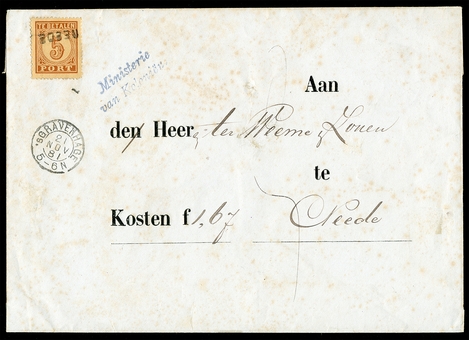 TE BETALEN
5
PORT
NEEDE
Ministerie
van Koloniën
'SGRAVENHAGE
21
NOV
81
5-6N
Aan
den Heer ter Weeme & Zonen
te
Neede
Kosten f 1,67